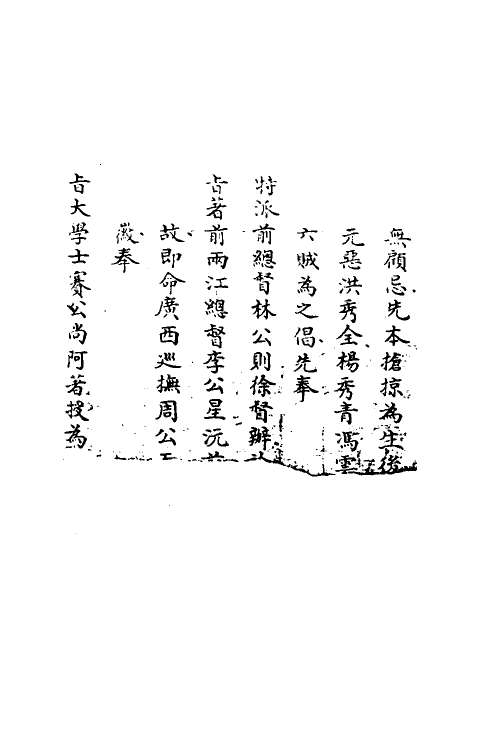 無顧忌先本搶掠為生後
元惡洪秀全楊秀青馮雲
六賊為之倡先奉
特派前總督林公則徐督辦
旨著前兩江總督李公星沅前
故即命廣西巡撫周公天
徽奉
旨大學士賽公尚阿著授為